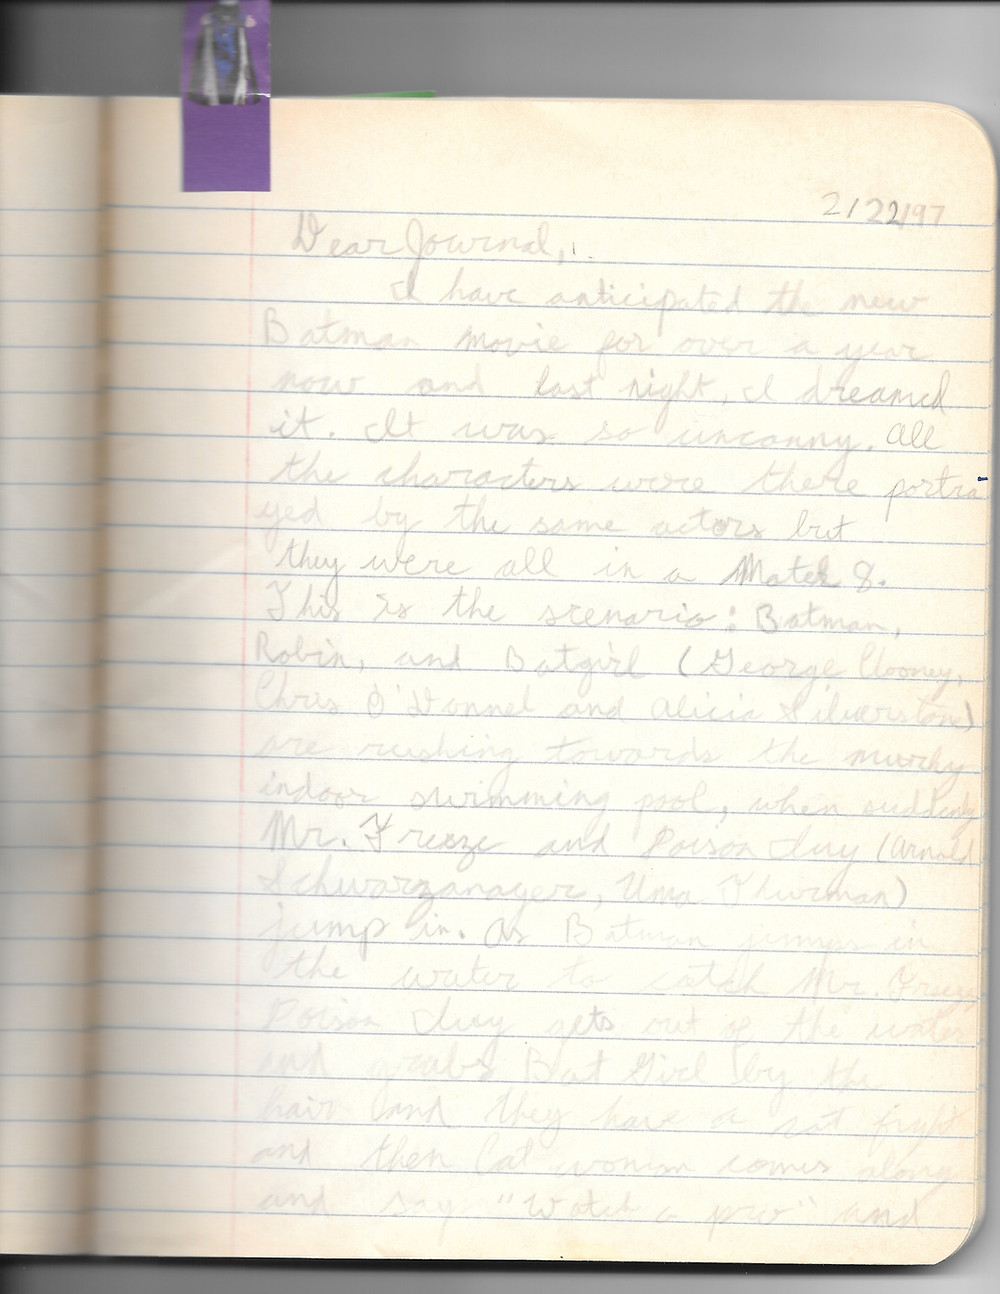 2/22/97
Dear Journal,
I have anticipated the new
Batman movie for over a year
now and last night, I dreamed
it. It was so uncanny. All
the characters were there portra
yed by the same actors but
they were all in a Motel 8.
This is the scenario: Batman,
Robin, and Batgirl (George Clooney,
Chris O'Donnel and Alicia Silverston)
are rushing towards the murky
indoor swimming pool, when suddenly
Mr. Freeze and Poison Ivy (Arnold
Schwarzanager, Uma Thurman)
jump in. As Batman jumps in
the water to catch Mr. Freeze
Poison Ivy gets out of the water
and grabs Bat Girl by the
hair and they have a cat fight
and then Cat woman comes along
and say "Watch a pro" and